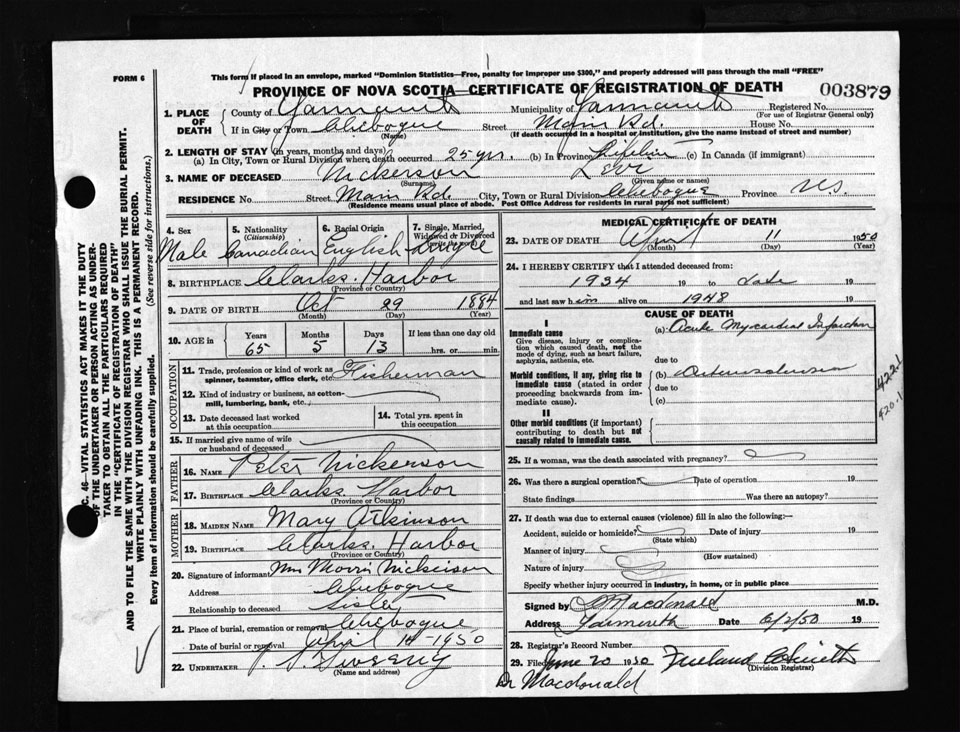 FORM 6
This form if placed in an envelope, marked "Dominion Statistics—Free, penalty for improper use $300," and properly addressed will pass through the mail "FREE"
PROVINCE OF NOVA SCOTIA—CERTIFICATE OF REGISTRATION OF DEATH
003879
1. PLACE OF DEATH County of Yarmouth Municipality of Yarmouth Registered No.
(For use of Registrar General only)
If in City or Town Chebogue Street Main Rd. House No.
(Name) (If death occurred in a hospital or institution, give the name instead of street and number)
2. LENGTH OF STAY (in years, months and days)
(a) In City, Town or Rural Division where death occurred 25 yrs. (b) In Province Lifetime (c) In Canada (if immigrant)
3. NAME OF DECEASED Nickerson Levi
(Surname) (Given name or names)
RESIDENCE No. Street Main Rd. City, Town or Rural Division Chebogue Province N.S.
(Residence means usual place of abode. Post Office Address for residents in rural parts not sufficient)
4. Sex Male
5. Nationality (Citizenship) Canadian
6. Racial Origin English
7. Single, Married, Widowed or Divorced (write the word) Single
8. BIRTHPLACE Clarks Harbor
(Province or Country)
9. DATE OF BIRTH Oct 29 1884
(Month) (Day) (Year)
10. AGE in Years 65 Months 5 Days 13 If less than one day old hrs. or min.
OCCUPATION
11. Trade, profession or kind of work as spinner, teamster, office clerk, etc. Fisherman
12. Kind of industry or business, as cotton-mill, lumbering, bank, etc.
13. Date deceased last worked at this occupation
14. Total yrs. spent in this occupation
15. If married give name of wife or husband of deceased
FATHER
16. NAME Peter Nickerson
17. BIRTHPLACE Clarks Harbor
(Province or Country)
MOTHER
18. MAIDEN NAME Mary Atkinson
19. BIRTHPLACE Clarks Harbor
(Province or Country)
20. Signature of informant Mrs Morris Nickerson
Address Chebogue
Relationship to deceased Sister
21. Place of burial, cremation or removal Chebogue
Date of burial or removal April 14 - 1950 19
22. UNDERTAKER Sweeny
(Name and address)
MEDICAL CERTIFICATE OF DEATH
23. DATE OF DEATH April 11 1950
(Month) (Day) (Year)
24. I HEREBY CERTIFY that I attended deceased from:
1934 19 to date 19
and last saw him alive on 1948 19
CAUSE OF DEATH
I
Immediate cause
Give disease, injury or complication which caused death, not the mode of dying, such as heart failure, asphyxia, asthenia, etc.
(a) Acute Myocardial Infarction
due to
Morbid conditions, if any, giving rise to immediate cause (stated in order proceeding backwards from immediate cause).
(b) Arteriosclerosis
due to
(c)
II
Other morbid conditions (if important) contributing to death but not causally related to immediate cause.
422.1
420.1
25. If a woman, was the death associated with pregnancy?
26. Was there a surgical operation? Date of operation 19
State findings Was there an autopsy?
27. If death was due to external causes (violence) fill in also the following:—
Accident, suicide or homicide? Date of injury 19
(State which)
Manner of injury
(How sustained)
Nature of injury
Specify whether injury occurred in industry, in home, or in public place
Signed by Macdonald M.D.
Address Yarmouth Date 6/2/50 19
28. Registrar's Record Number
29. Filed June 20 1950 Freeland
(Division Registrar)
Dr Macdonald
C. 46—VITAL STATISTICS ACT MAKES IT THE DUTY
OF THE UNDERTAKER OR PERSON ACTING AS UNDER-
TAKER TO OBTAIN ALL THE PARTICULARS REQUIRED
IN THE "CERTIFICATE OF REGISTRATION OF DEATH"
AND TO FILE THE SAME WITH THE DIVISION REGISTRAR WHO SHALL ISSUE THE BURIAL PERMIT.
WRITE PLAINLY WITH UNFADING INK. THIS IS A PERMANENT RECORD.
Every item of information should be carefully supplied. (See reverse side for instructions.)